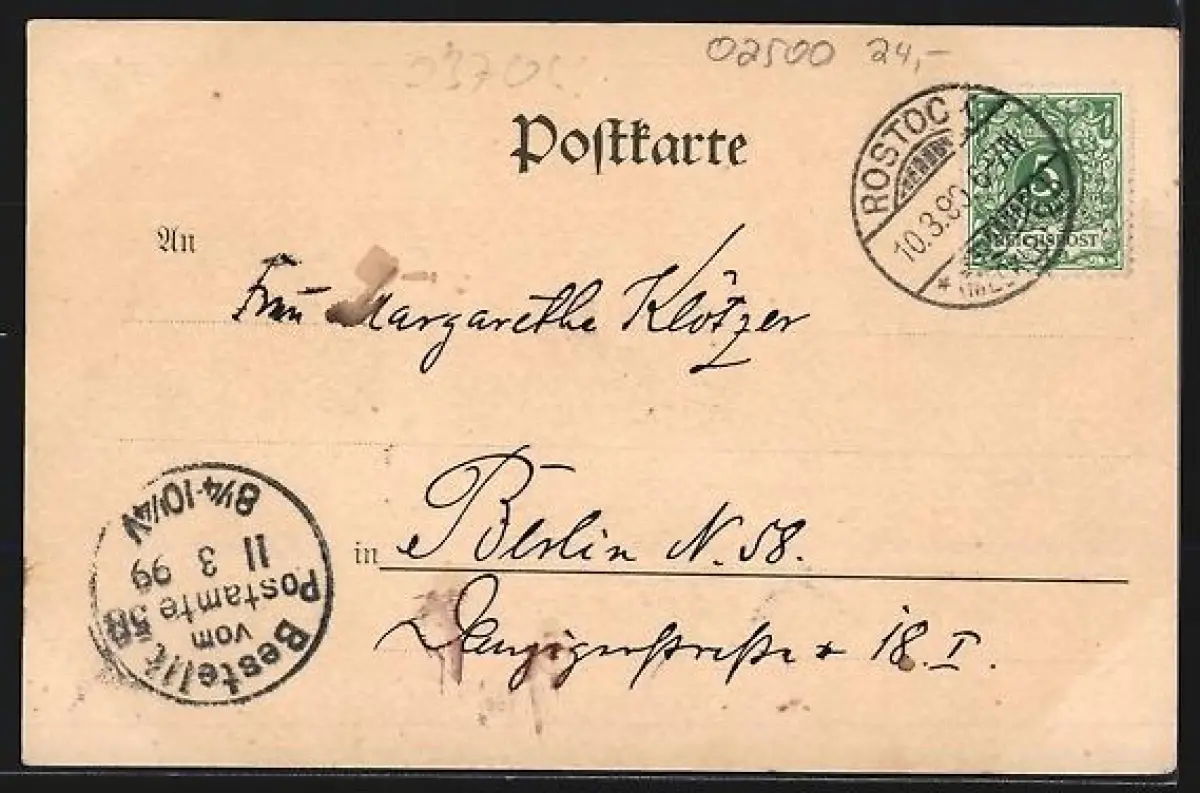 02500 24,-
Postkarte
ROSTOCK 1
10.3.99. 6-7N
* (MECKL
5
REICHSPOST
An
Frau Margarethe Klötzer
in Berlin N. 58.
Danzigerstraße 18. I.
Bestellt
vom
Postamte 58
11 3 99
8¼-10¼V